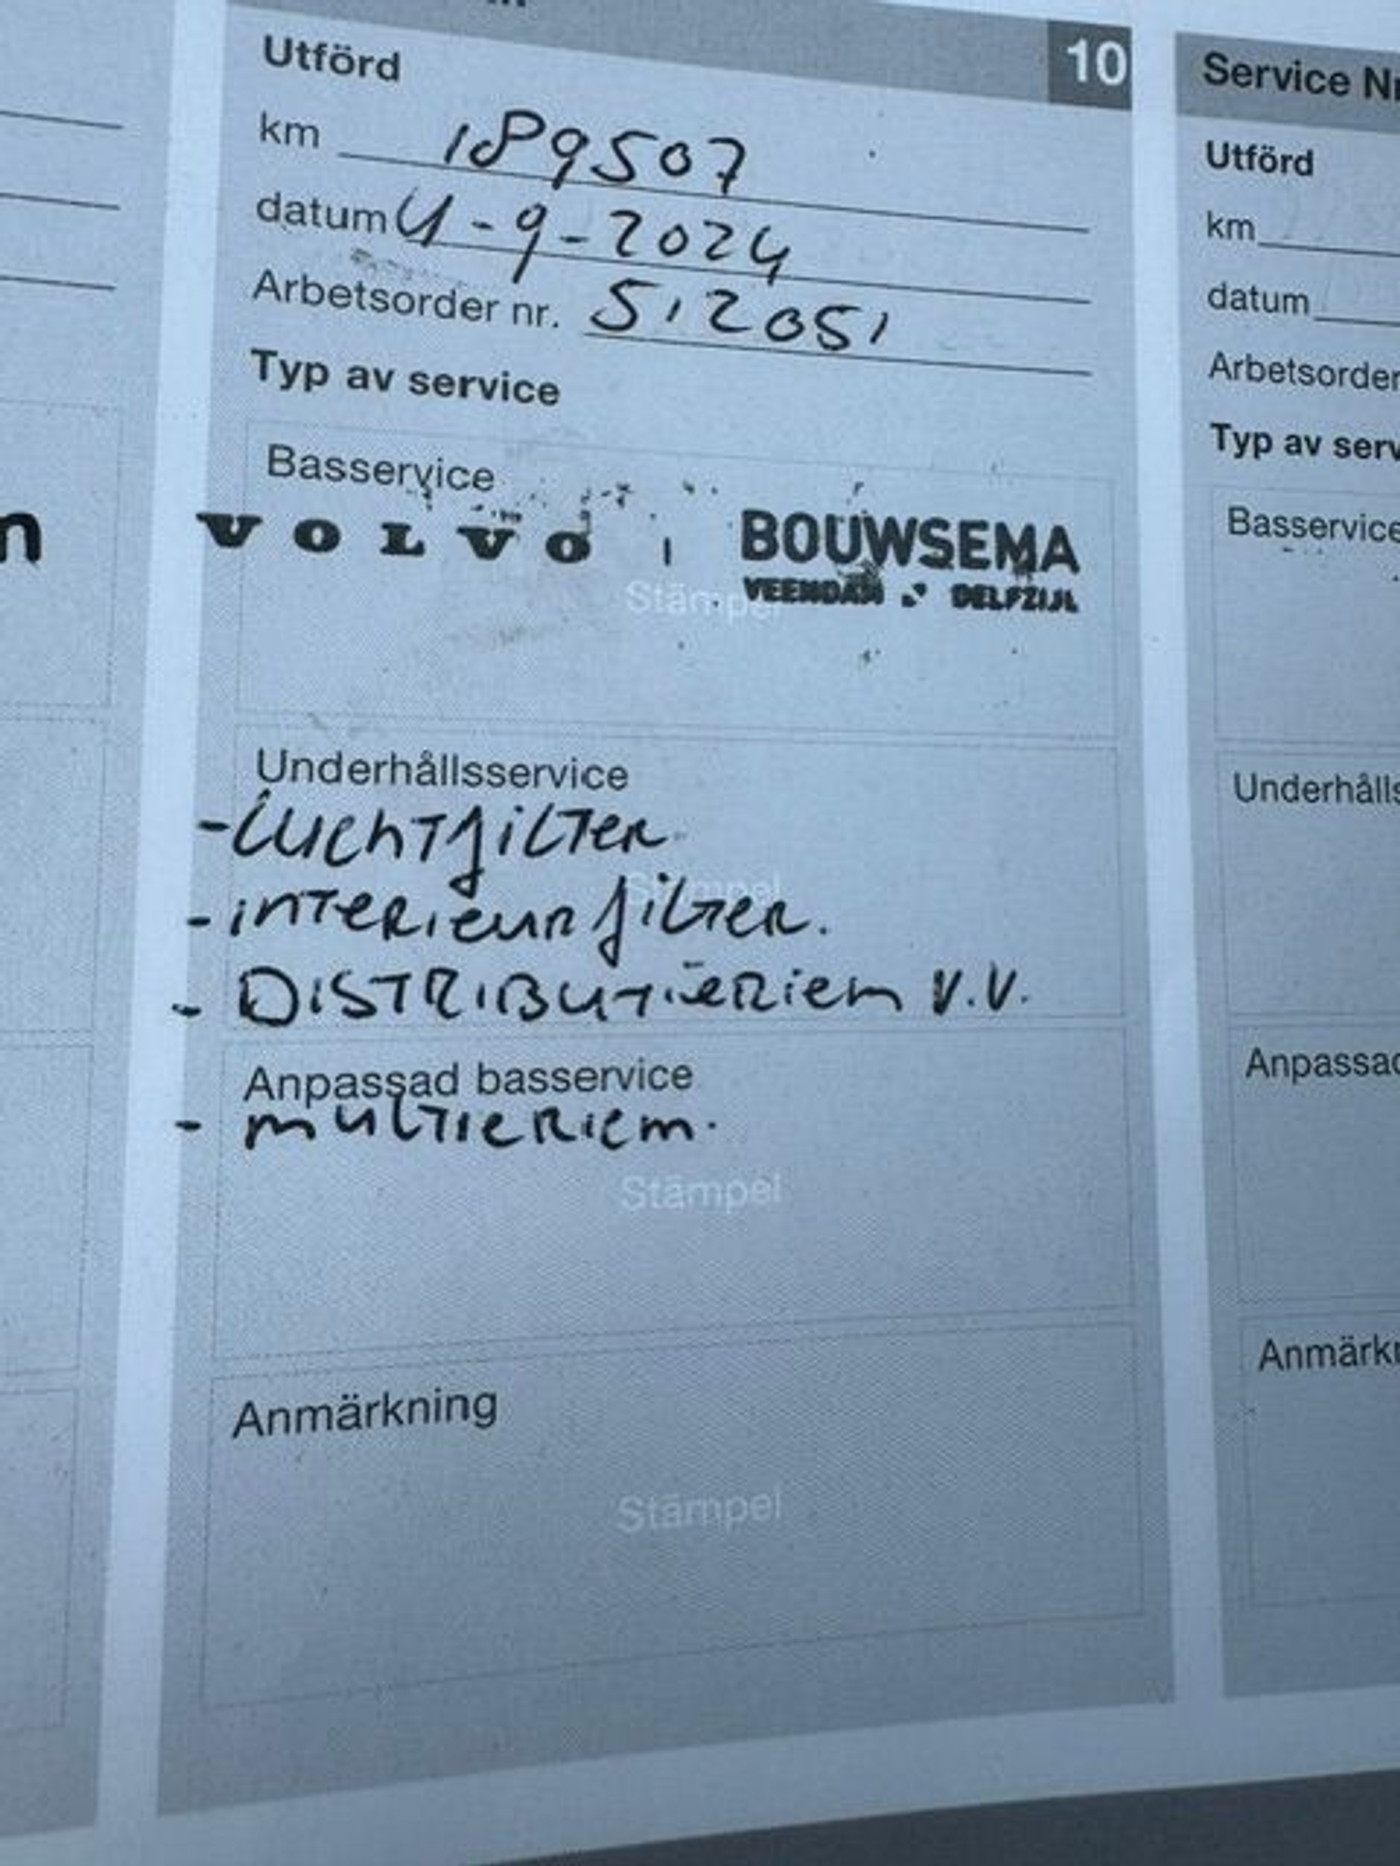 10
Utförd
km 189507
datum 4-9-2024
Arbetsorder nr. 512051
Typ av service
Basservice
VOLVO | BOUWSEMA
VEENDAM DELFZIJL
Stämpel
Underhållsservice
-Luchtfilter
Stämpel
-interieurfilter.
- DISTRIBUTIERiem V.V.
Anpassad basservice
- multieriem.
Stämpel
Anmärkning
Stämpel
n
Service Nr
Utförd
km
datum
Arbetsorder
Typ av serv
Basservice
Underhålls
Anpassad
Anmärkn